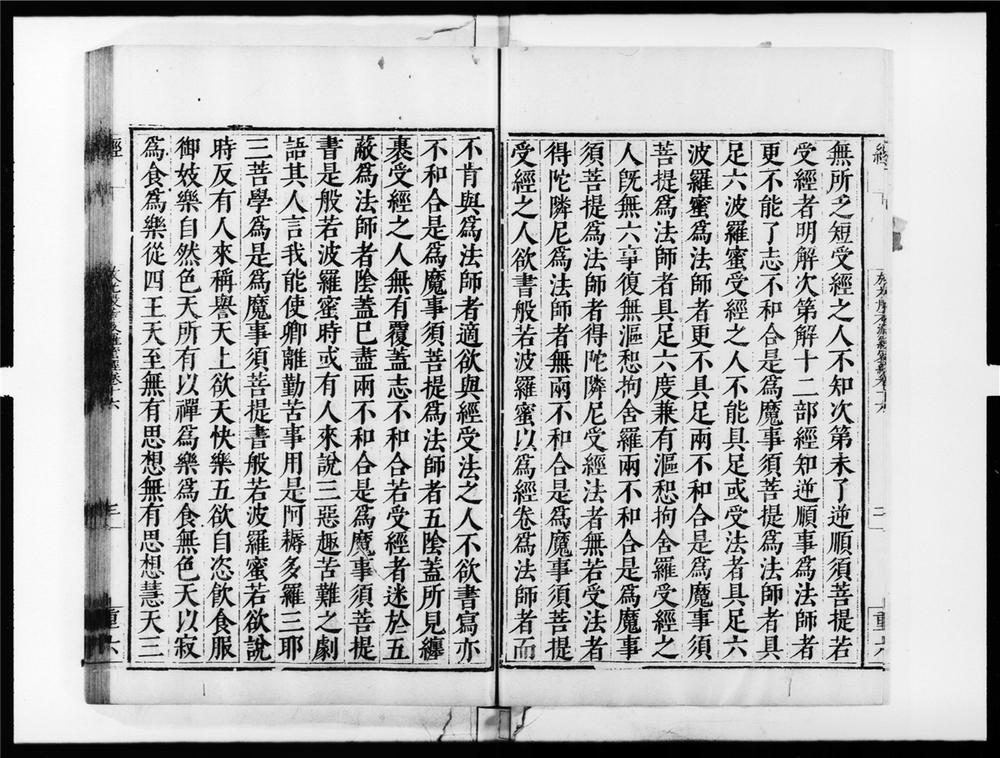 無所乏短受經之人不知次第未了逆順須菩提若
受經者明解次第解十二部經知逆順事為法師者
更不能了志不和合是為魔事須菩提為法師者具
足六波羅蜜受經之人不能具足或受法者具足六
波羅蜜為法師者更不具足兩不和合是為魔事須
菩提為法師者具足六度兼有漚惒拘舍羅受經之
人旣無六事復無漚惒拘舍羅兩不和合是為魔事
須菩提為法師者得陀隣尼受經法者無若受法者
得陀隣尼為法師者無兩不和合是為魔事須菩提
受經之人欲書般若波羅蜜以為經卷為法師者而
不肯與為法師者適欲與經受法之人不欲書寫亦
不和合是為魔事須菩提為法師者五陰蓋所見纏
裹受經之人無有覆蓋志不和合若受經者迷於五
蔽為法師者陰蓋已盡兩不和合是為魔事須菩提
書是般若波羅蜜時或有人來說三惡趣苦難之劇
語其人言我能使卿離勤苦事用是阿耨多羅三耶
三菩學為是為魔事須菩提書般若波羅蜜若欲說
時反有人來稱譽天上欲天快樂五欲自恣飲食服
御妓樂自然色天所有以禪為樂為食無色天以寂
為食為樂從四王天至無有思想無有思想慧天三
經
三
重六